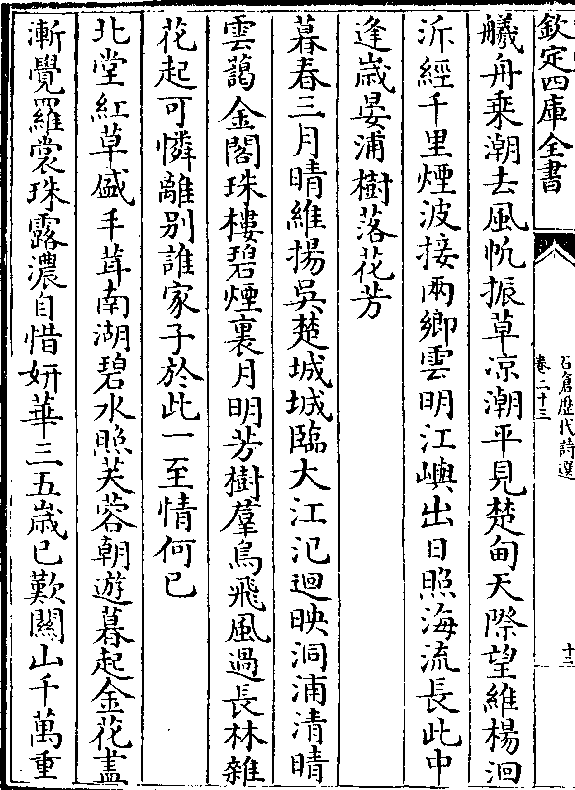 欽定四庫全書
石倉歴代詩選
卷二十三
十三
艤舟乗潮去風帆振草凉潮平見楚甸天際望維楊洄
泝經千里煙波接兩鄉雲明江嶼出日照海流長此中
逢歲晏浦樹落花芳
暮春三月晴維揚吳楚城城臨大江汜迴映洞浦清晴
雲藹金閣珠樓碧煙裏月明芳樹羣鳥飛風過長林雜
花起可憐離别誰家子於此一至情何已
北堂紅草盛丰茸南湖碧水照芙蓉朝遊暮起金花盡
漸覺羅裳珠露濃自惜妍華三五歲已歎關山千萬重